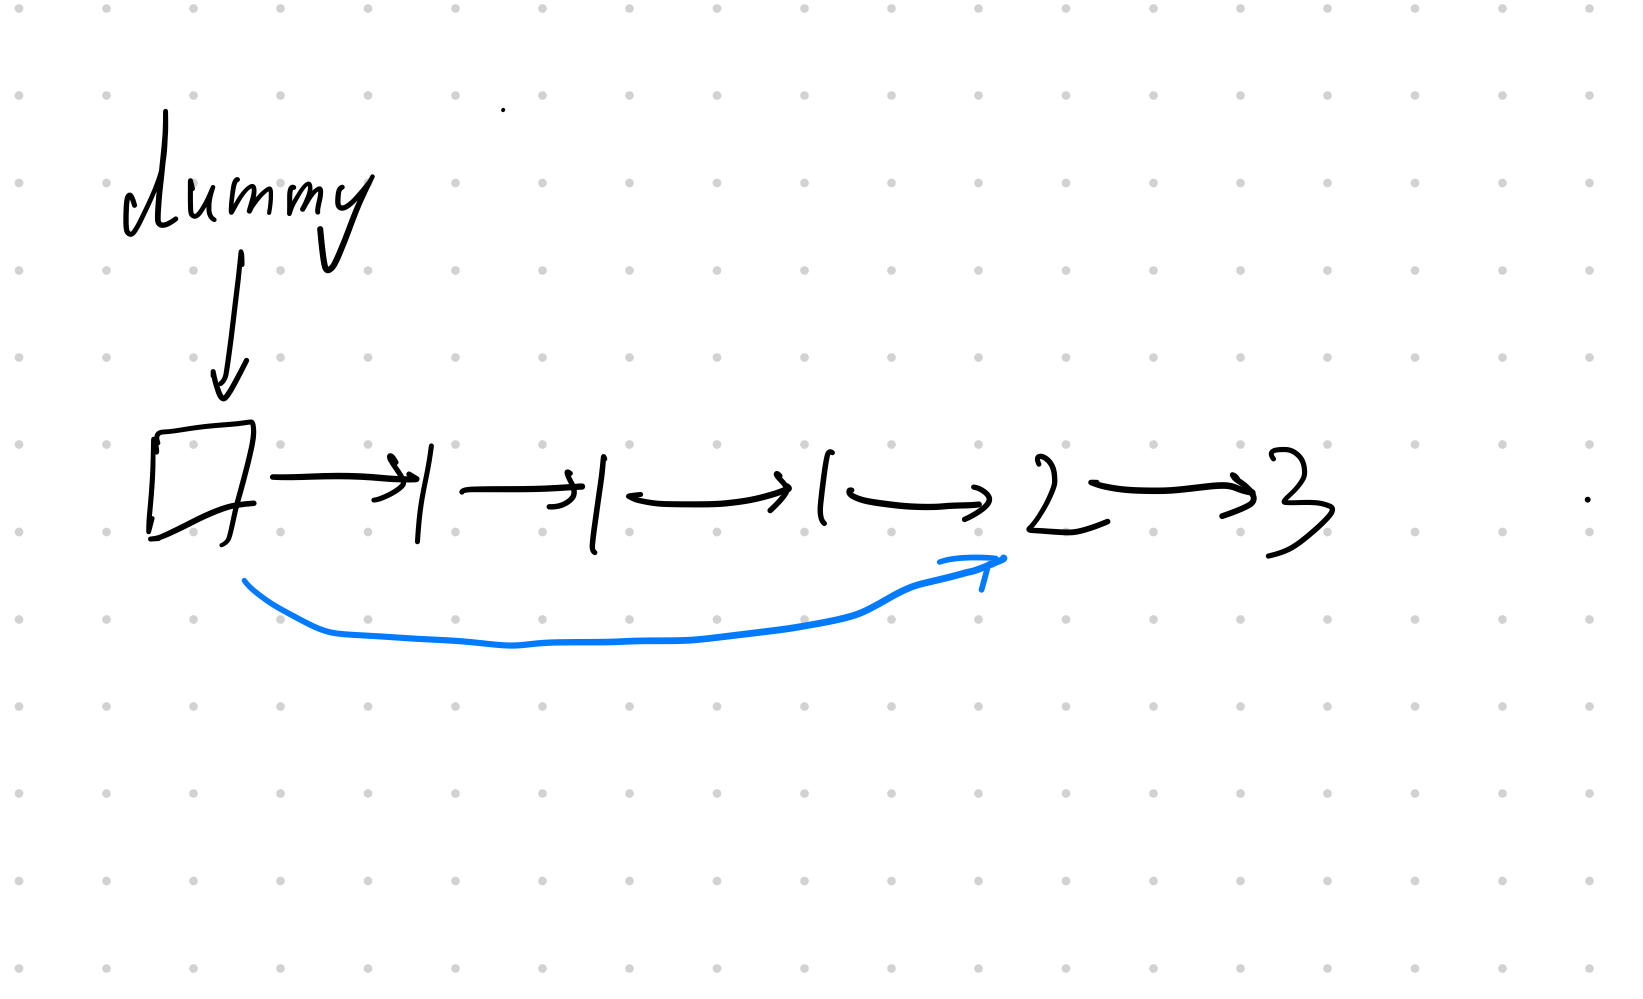 dummy
1 1 1 2 3